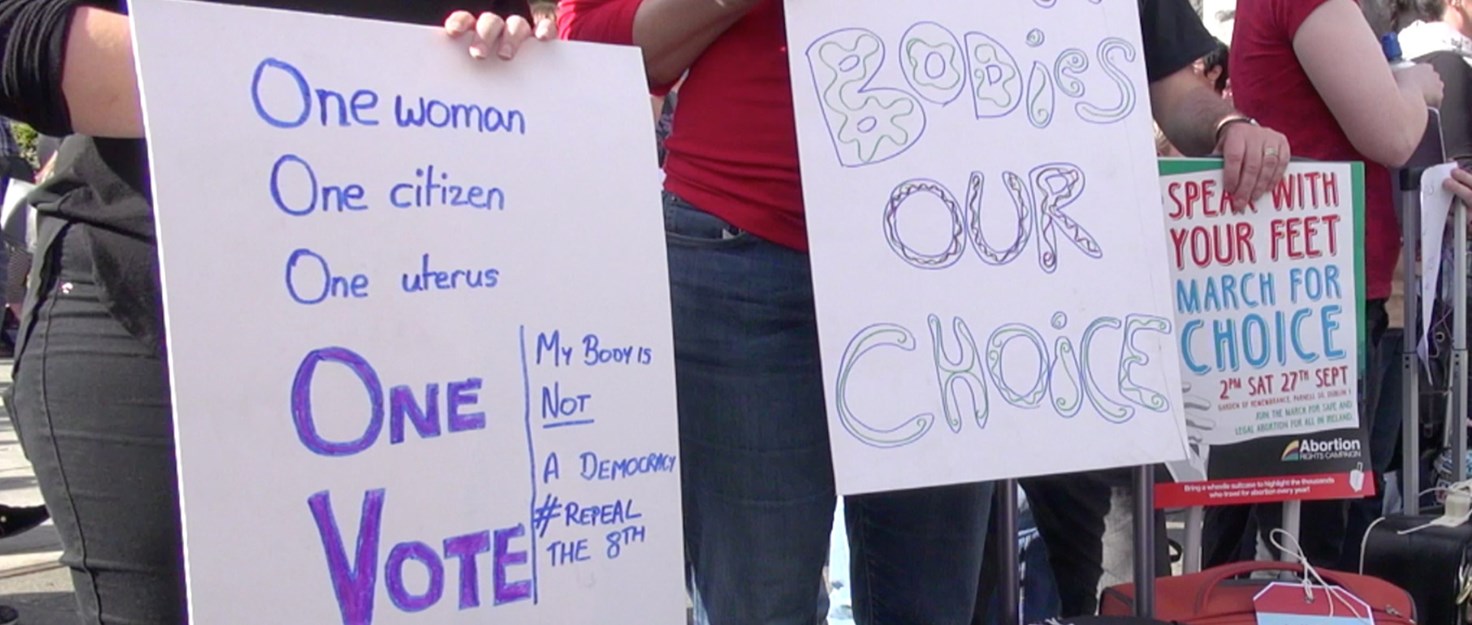 One woman
One citizen
One uterus
ONE
VOTE
MY BODY IS
NOT
A DEMOCRACY
# REPEAL
THE 8TH
BODiES
OUR
CHOiCE
SPEAK WITH
YOUR FEET
MARCH FOR
CHOICE
2PM SAT 27TH SEPT
GARDEN OF REMEMBRANCE, PARNELL SQ, DUBLIN 1
JOIN THE MARCH FOR SAFE AND
LEGAL ABORTION FOR ALL IN IRELAND.
Abortion
RIGHTS CAMPAIGN
Bring a wheelie suitcase to highlight the thousands
who travel for abortion every year!